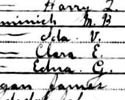 Harry L.
minich M. B
Ida V.
Clara E.
Edna G.
gan James